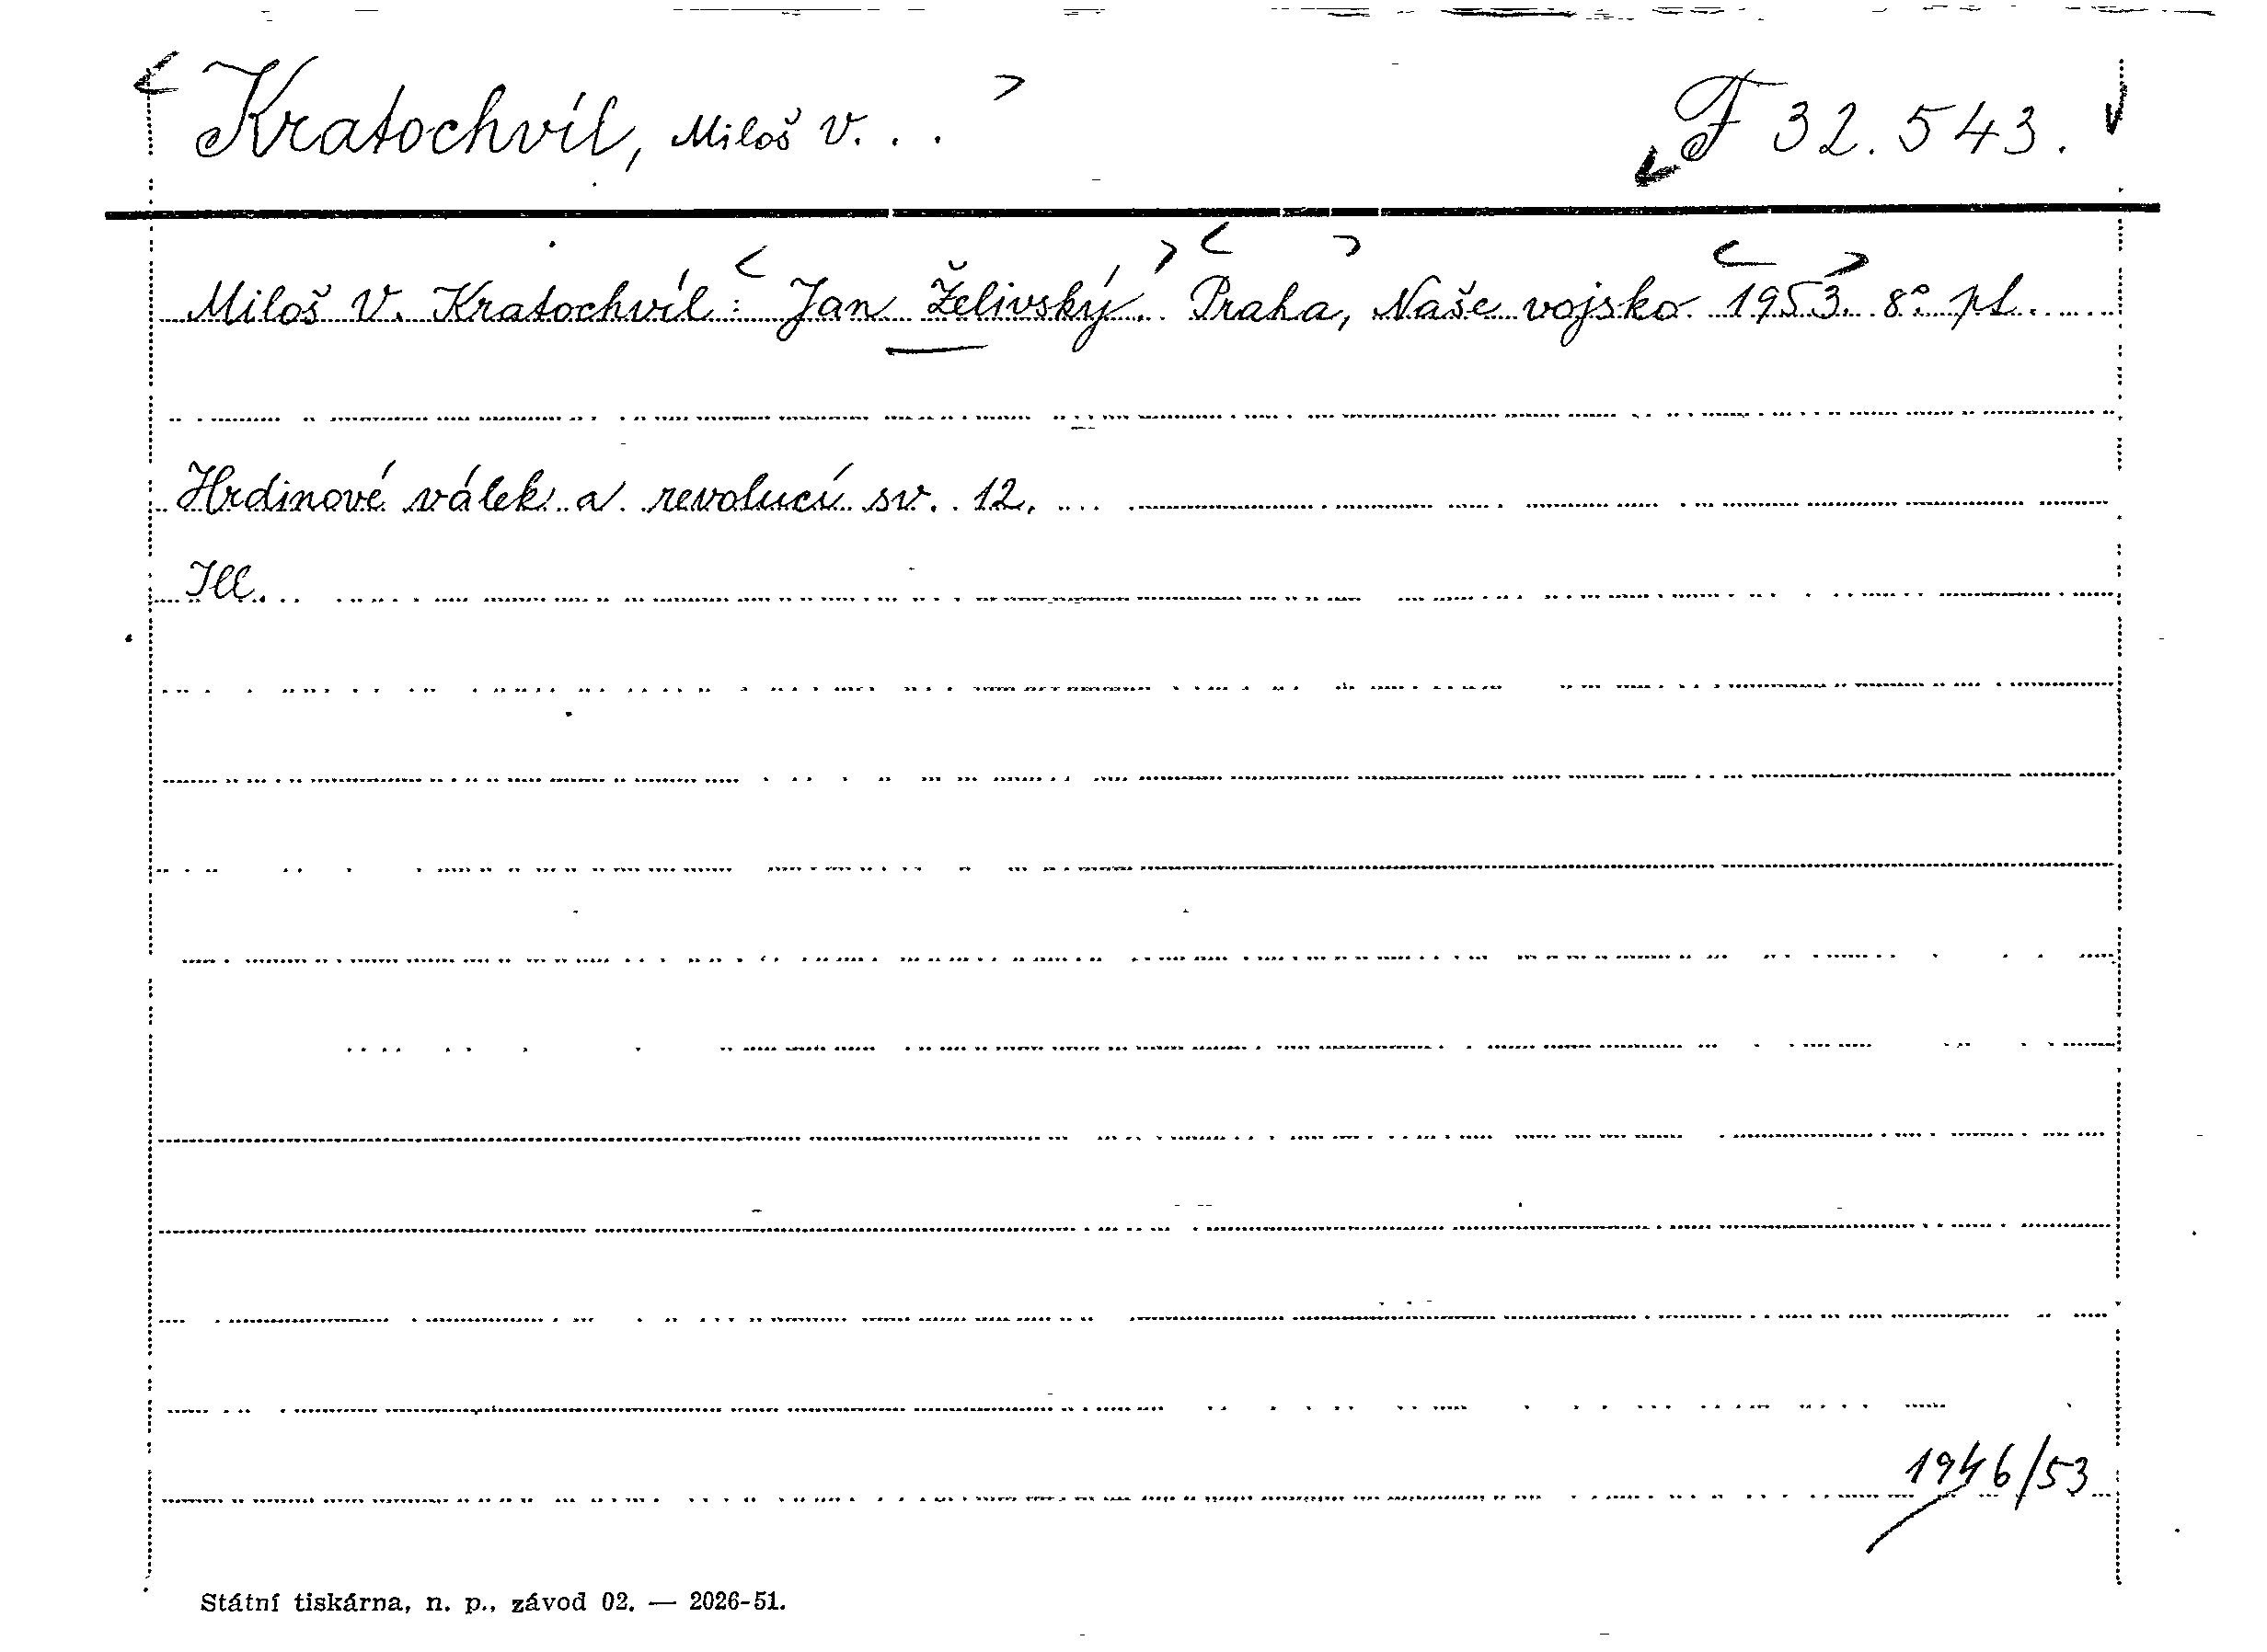 Kratochvíl, Miloš V. . . F 32.543.
Miloš V. Kratochvíl: Jan Želivský. Praha, Naše vojsko 1953. 8° pl.
Hrdinové válek a revolucí sv. 12.
Ill.
1946/53
Státní tiskárna, n. p., závod 02. — 2026-51.